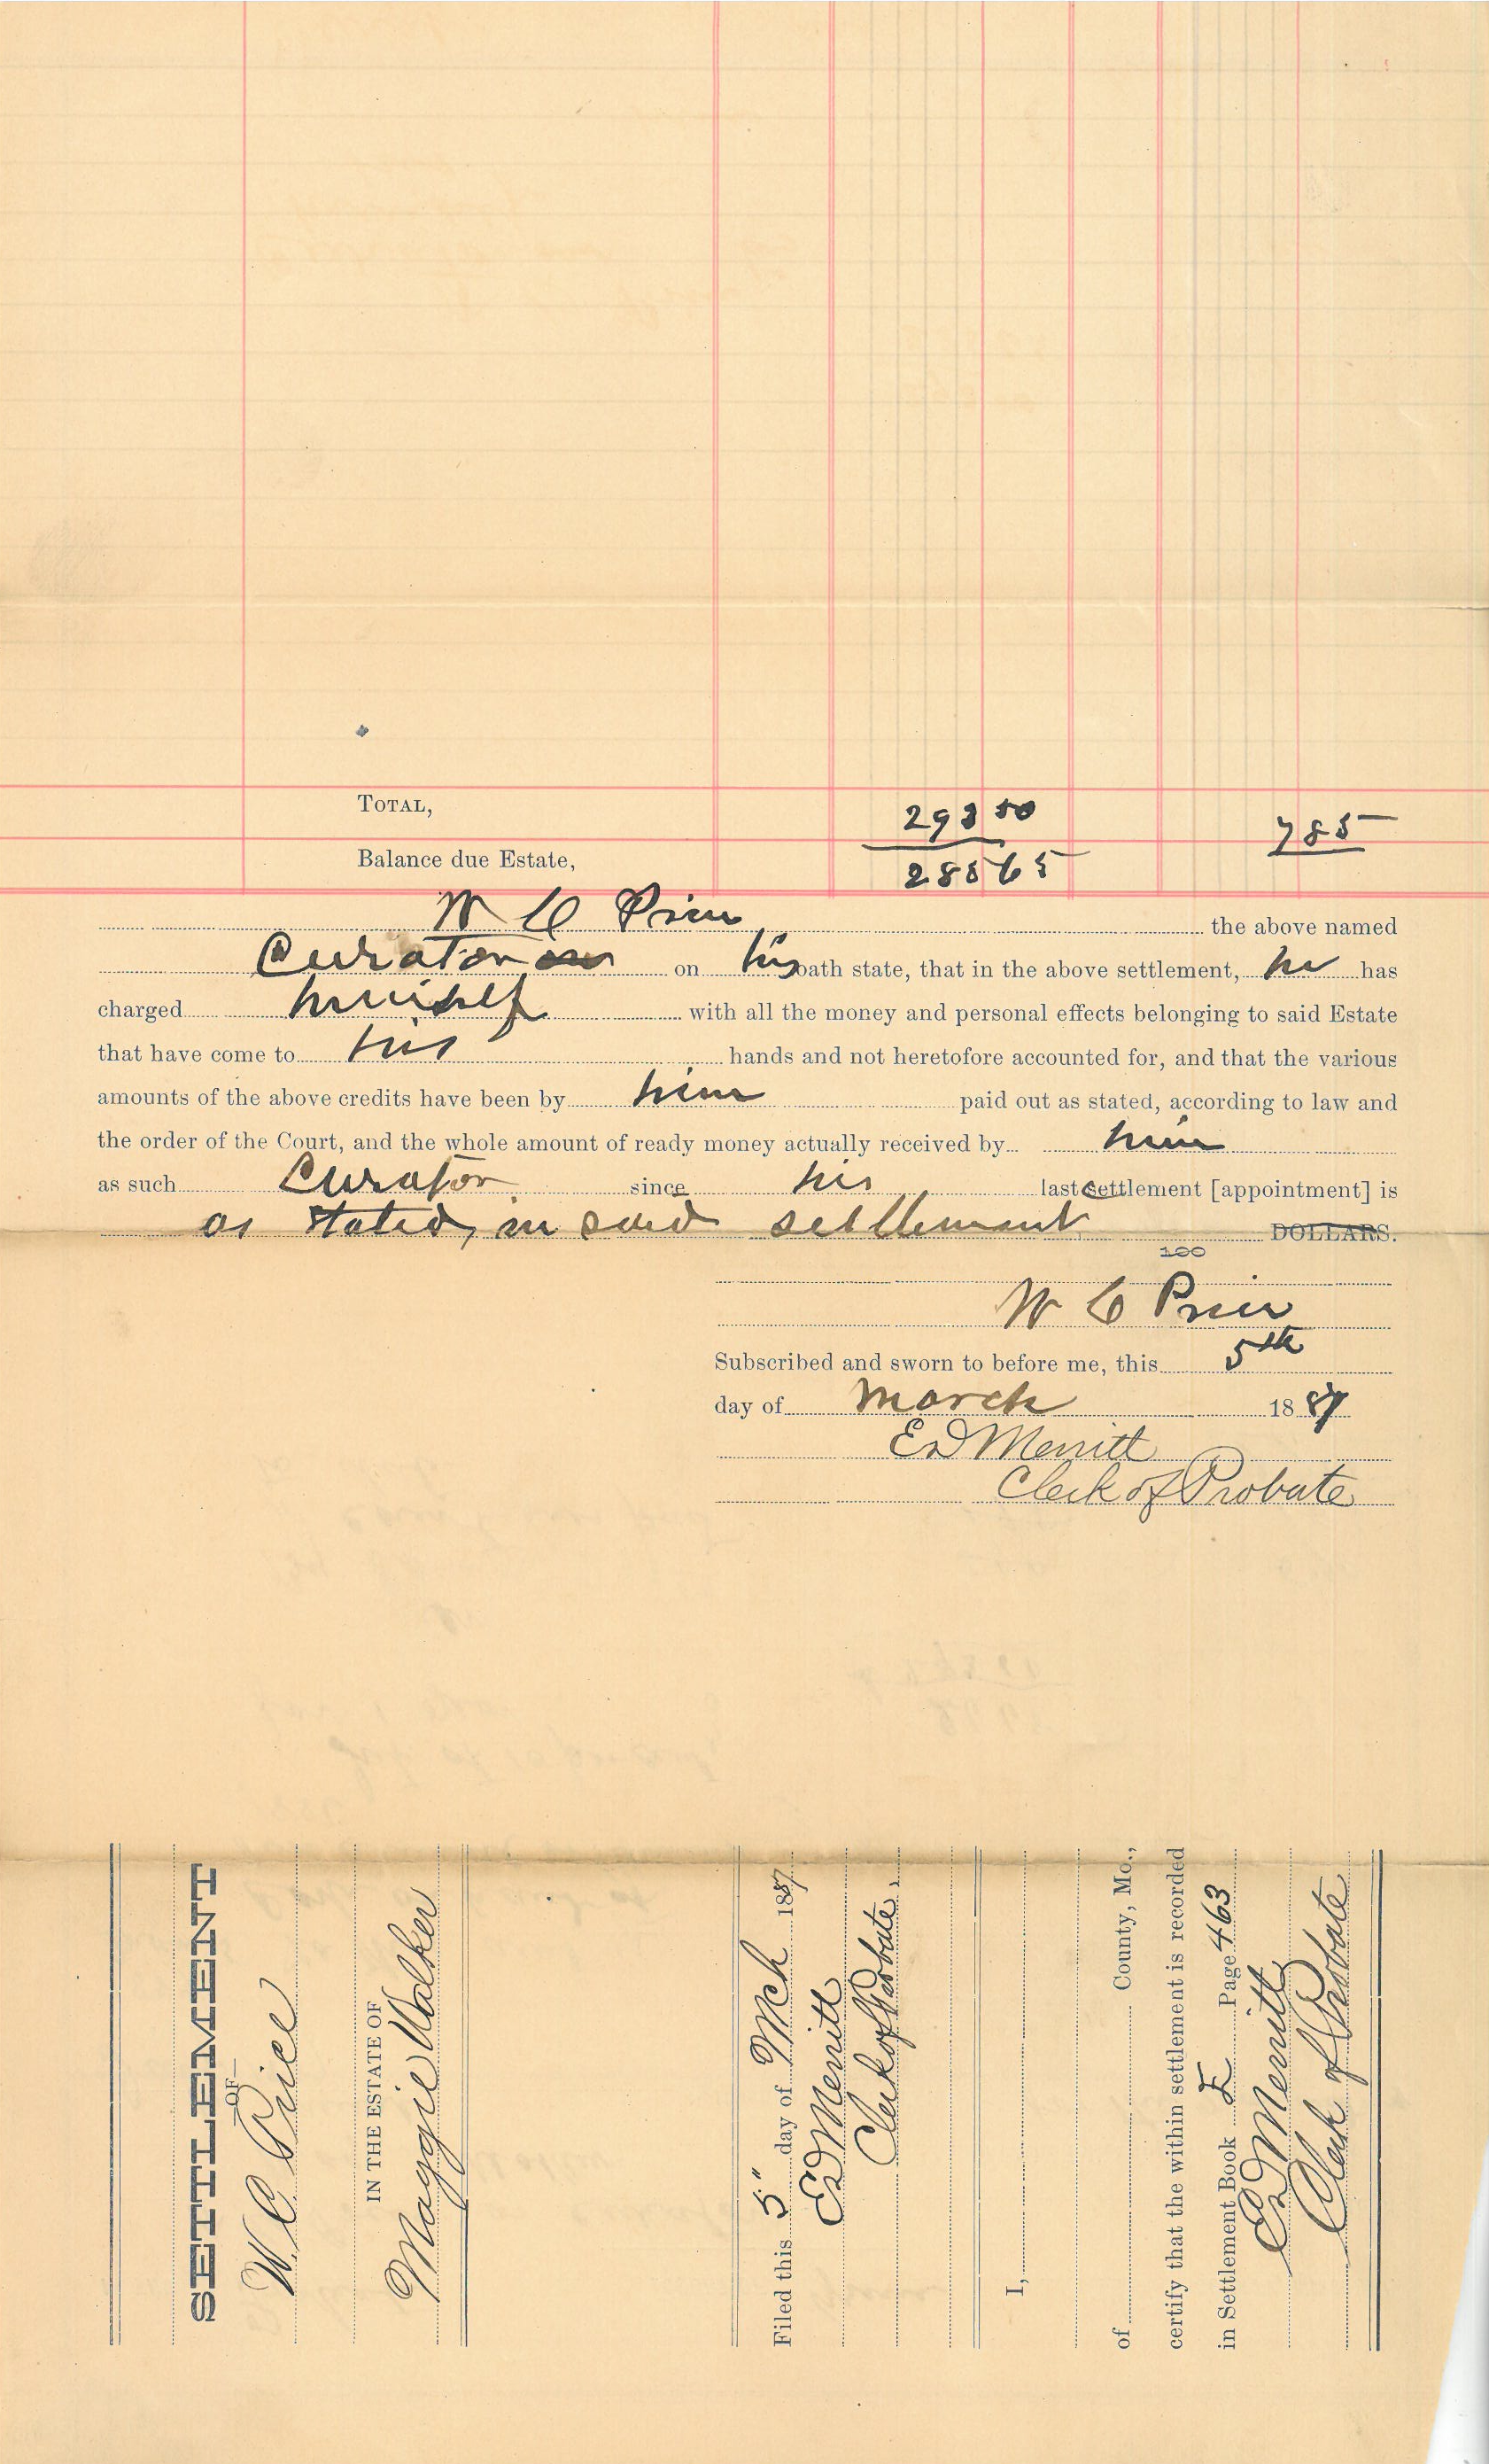 TOTAL, 293 50 7 85
Balance due Estate, 285 65
W C Price the above named
Curator on his oath state, that in the above settlement, he has
charged himself with all the money and personal effects belonging to said Estate
that have come to his hands and not heretofore accounted for, and that the various
amounts of the above credits have been by him paid out as stated, according to law and
the order of the Court, and the whole amount of ready money actually received by him
as such Curator since his last settlement [appointment] is
as stated, in said settlement DOLLARS.
100
W C Price
Subscribed and sworn to before me, this 5th
day of March 1887
ED Merritt
Clerk of Probate
SETTLEMENT
—OF—
W. C. Price
IN THE ESTATE OF
Maggie Walker
Filed this 5" day of Mch 1887
ED Merritt
Clerk of Probate.
I,
of County, Mo.,
certify that the within settlement is recorded
in Settlement Book E Page 463
ED Merritt
Clerk of Probate